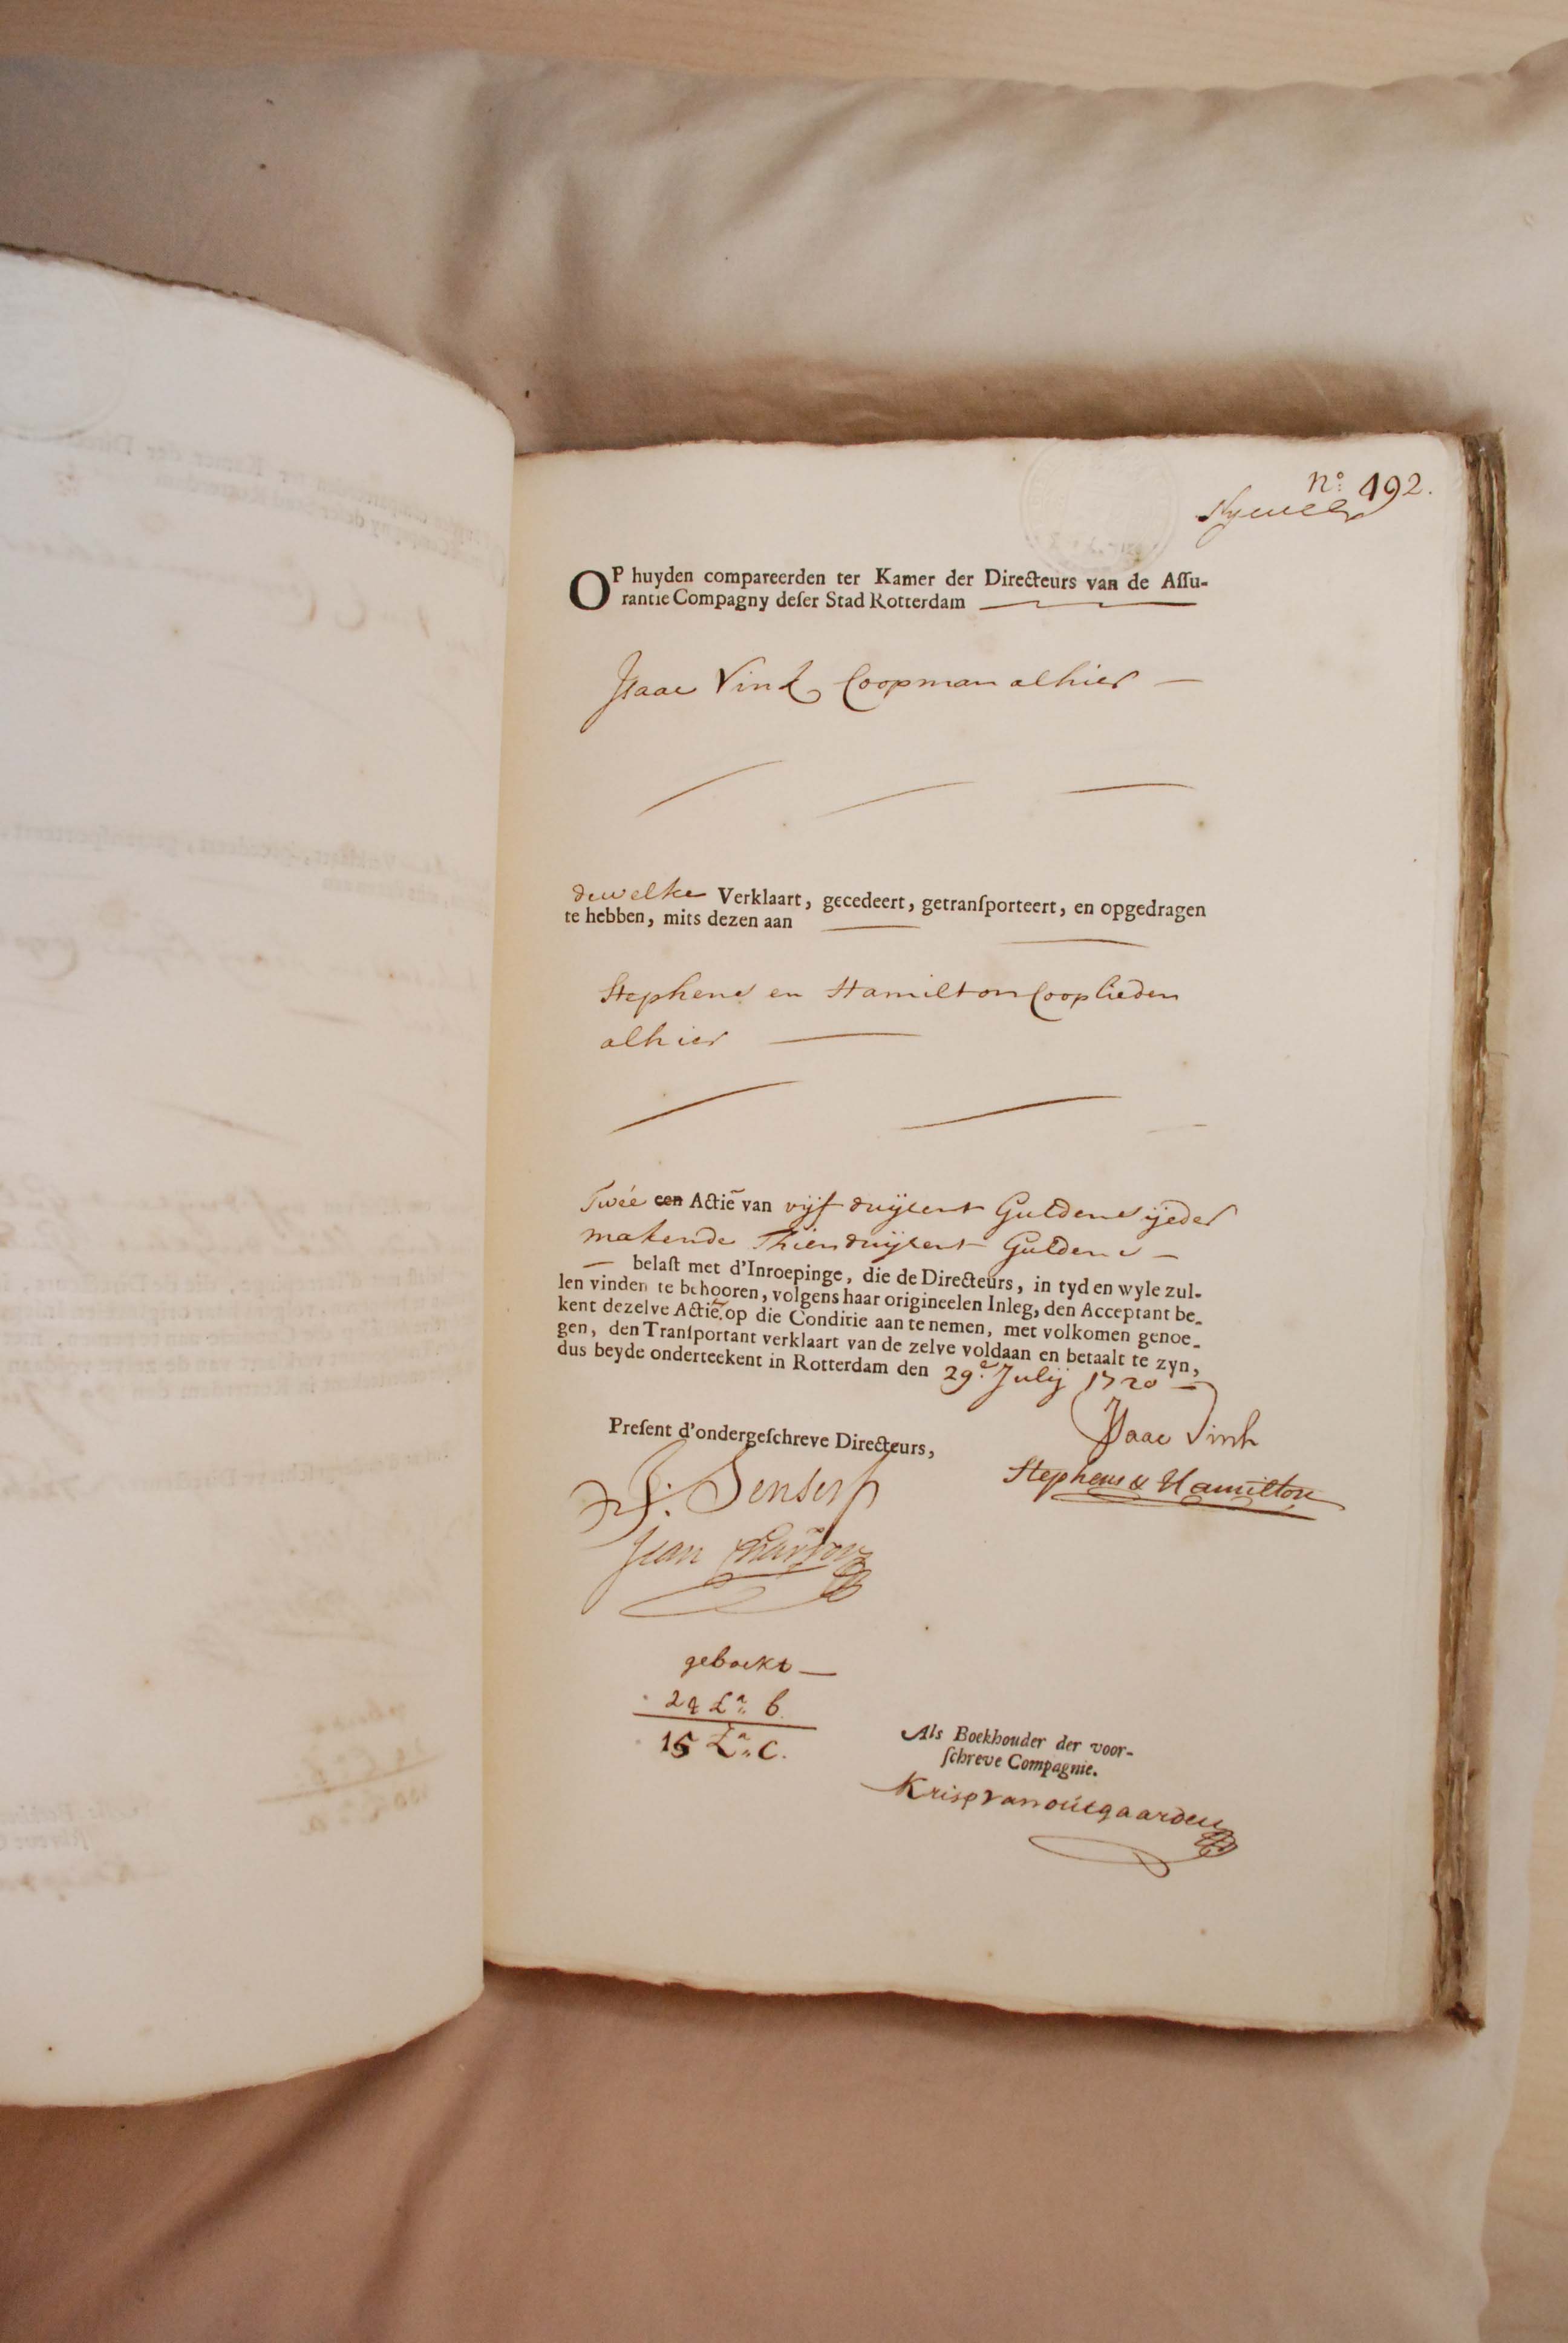 nº: 492.
OP huyden compareerden ter Kamer der Directeurs van de Aſſu-
rantie Compagny deſer Stad Rotterdam
Isaac Vink Coopman alhier
dewelke Verklaart, gecedeert, getranſporteert, en opgedragen
te hebben, mits dezen aan
Stephens en Hamilton Cooplieden
alhier
Twée een Actiē van vijf duijsent Guldens ijeder
makende Thien duijsent Guldens
belaſt met d'Inroepinge, die de Directeurs, in tyd en wyle zul-
len vinden te behooren, volgens haar origineelen Inleg, den Acceptant be-
kent dezelve Actie op die Conditie aan te nemen, met volkomen genoe-
gen, den Tranſportant verklaart van de zelve voldaan en betaalt te zyn,
dus beyde onderteekent in Rotterdam den 29.e Julij 1720
Isaac Vink
Preſent d'ondergeſchreve Directeurs,
Stephens & Hamilton
J: Senserf
Jean Charron
geboekt
24 La: b.
15 La: C.
Als Boekhouder der voor-
ſchreve Compagnie.
Krisp van outgaarden